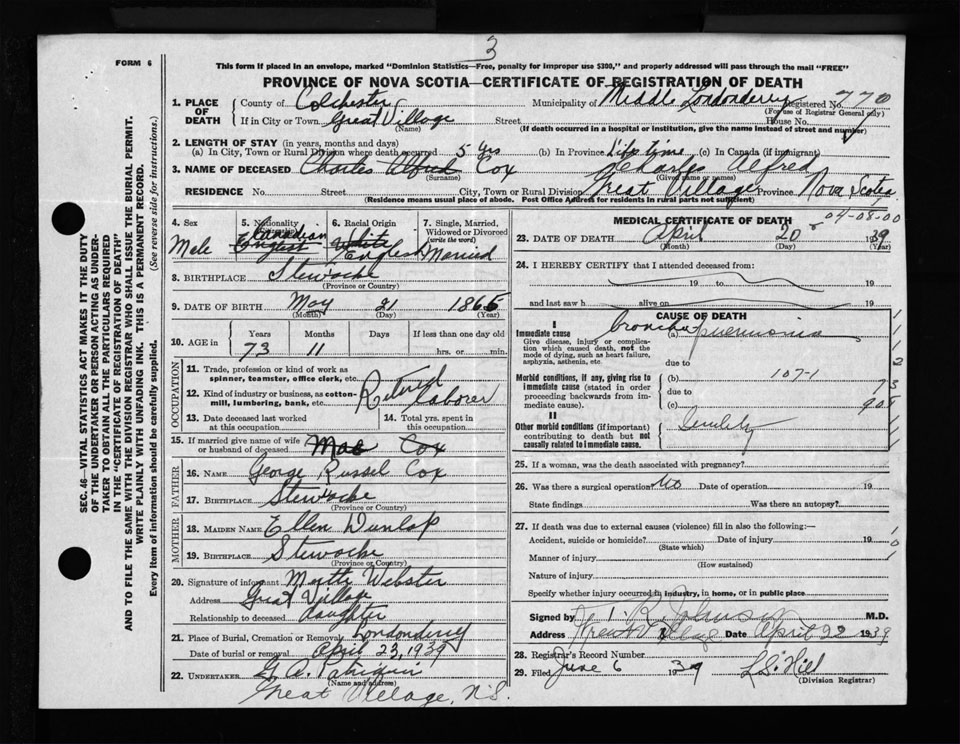 3
FORM 6
This form if placed in an envelope, marked "Dominion Statistics—Free, penalty for improper use $300," and properly addressed will pass through the mail "FREE"
PROVINCE OF NOVA SCOTIA—CERTIFICATE OF REGISTRATION OF DEATH
SEC. 46—VITAL STATISTICS ACT MAKES IT THE DUTY
OF THE UNDERTAKER OR PERSON ACTING AS UNDER-
TAKER TO OBTAIN ALL THE PARTICULARS REQUIRED
IN THE "CERTIFICATE OF REGISTRATION OF DEATH"
AND TO FILE THE SAME WITH THE DIVISION REGISTRAR WHO SHALL ISSUE THE BURIAL PERMIT.
WRITE PLAINLY WITH UNFADING INK. THIS IS A PERMANENT RECORD.
Every item of information should be carefully supplied. (See reverse side for instructions.)
1. PLACE OF DEATH
County of Colchester Municipality of Middle Londonderry Registered No. 770
(For use of Registrar General only)
If in City or Town Great Village Street House No.
(Name) (If death occurred in a hospital or institution, give the name instead of street and number)
2. LENGTH OF STAY (in years, months and days)
(a) In City, Town or Rural Division where death occurred 5 yrs (b) In Province Life time (c) In Canada (if immigrant)
3. NAME OF DECEASED Charles Alfred Cox Charles Alfred
(Surname) (Given name or names)
RESIDENCE No. Street City, Town or Rural Division Great Village Province Nova Scotia
(Residence means usual place of abode. Post Office Address for residents in rural parts not sufficient)
4. Sex Male
5. Nationality (Citizenship) Canadian English
6. Racial Origin White English
7. Single, Married, Widowed or Divorced (write the word) Married
8. BIRTHPLACE Stewiacke
(Province or Country)
9. DATE OF BIRTH May 21 1865
(Month) (Day) (Year)
10. AGE in Years Months Days If less than one day old
73 11 hrs. or min.
OCCUPATION
11. Trade, profession or kind of work as spinner, teamster, office clerk, etc. Retired
12. Kind of industry or business, as cotton-mill, lumbering, bank, etc. Laborer
13. Date deceased last worked at this occupation
14. Total yrs. spent in this occupation
15. If married give name of wife or husband of deceased Mae Cox
FATHER
16. NAME George Russel Cox
17. BIRTHPLACE Stewiacke
(Province or Country)
MOTHER
18. MAIDEN NAME Ellen Dunlap
19. BIRTHPLACE Stewiacke
(Province or Country)
20. Signature of informant Webster
Address Great Village
Relationship to deceased daughter
21. Place of Burial, Cremation or Removal Londonderry
Date of burial or removal April 23, 1939
22. UNDERTAKER G. A. Patriquin
(Name and address)
Great Village, N.S.
MEDICAL CERTIFICATE OF DEATH
04-08-00
23. DATE OF DEATH April 20 1939
(Month) (Day) (Year)
24. I HEREBY CERTIFY that I attended deceased from:
19 to 19
and last saw h alive on 19
CAUSE OF DEATH
I
Immediate cause (a) broncho pneumonia
Give disease, injury or complication which caused death, not the mode of dying, such as heart failure, asphyxia, asthenia, etc.
due to
Morbid conditions, if any, giving rise to immediate cause (stated in order proceeding backwards from immediate cause).
(b) 107-1
due to
(c)
II
Other morbid conditions (if important) contributing to death but not causally related to immediate cause. Senility
25. If a woman, was the death associated with pregnancy?
26. Was there a surgical operation? No Date of operation 19
State findings Was there an autopsy?
27. If death was due to external causes (violence) fill in also the following:—
Accident, suicide or homicide? Date of injury 19
(State which)
Manner of injury
(How sustained)
Nature of injury
Specify whether injury occurred in industry, in home, or in public place
Signed by T. R. Johnson M.D.
Address Great Village Date April 22 1939
28. Registrar's Record Number
29. Filed June 6 1939 L.S. Hill
(Division Registrar)